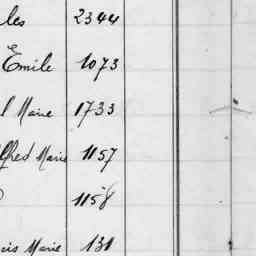 les 2344
Emile 1073
l Marie 1733
lfred Marie 1157
1158
cis Marie 131